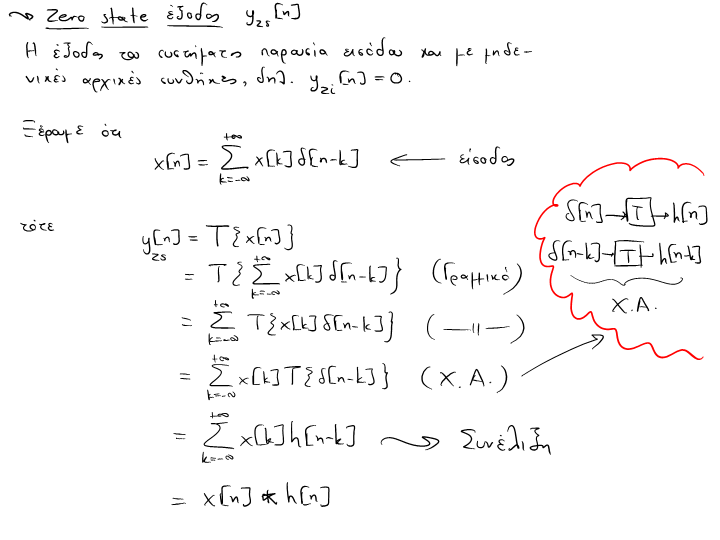 ~> Zero state έξοδος y_zs[n]
Η έξοδος του συστήματος παρουσία εισόδου και με μηδε-
νικές αρχικές συνθήκες, δηλ. y_zi[n] = 0.
Ξέραμε ότι
x[n] = ∑_{k=-∞}^{+∞} x[k] δ[n-k] ← είσοδος
τότε
y_zs[n] = T{x[n]}
= T{∑_{k=-∞}^{+∞} x[k] δ[n-k]} (Γραμμικό)
= ∑_{k=-∞}^{+∞} T{x[k] δ[n-k]} (—〃—)
= ∑_{k=-∞}^{+∞} x[k] T{δ[n-k]} (Χ.Α.)
= ∑_{k=-∞}^{+∞} x[k] h[n-k] ~> Συνέλιξη
= x[n] * h[n]
δ[n] → T → h[n]
δ[n-k] → T → h[n-k]
Χ.Α.